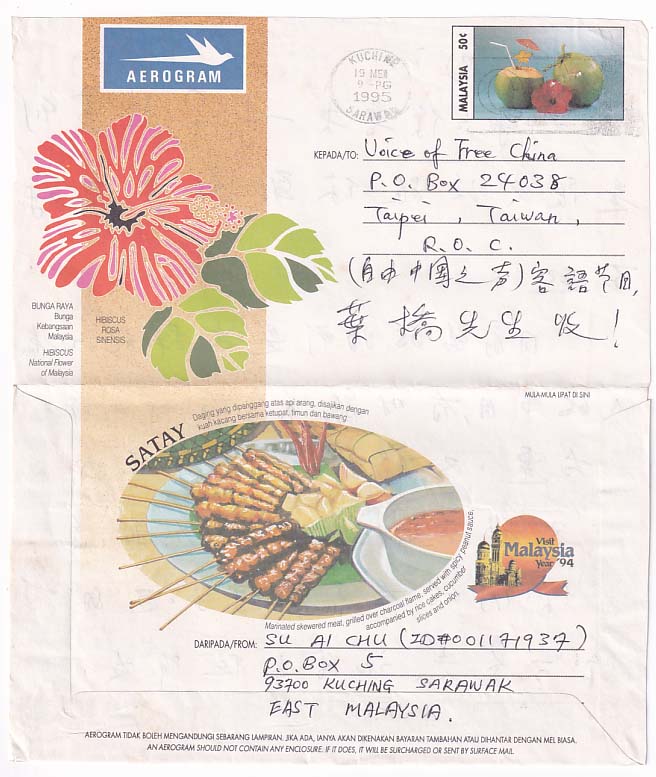 AEROGRAM
KUCHING
19 MEI
9-PG
1995
SARAWAK
MALAYSIA 50¢
KEPADA/TO: Voice of Free China
P.O. Box 24038
Taipei, Taiwan,
R.O.C.
(自由中國之声)客語节目,
葉橋先生收!
BUNGA RAYA
Bunga
Kebangsaan
Malaysia
HIBISCUS
National Flower
of Malaysia
HIBISCUS
ROSA
SINENSIS
MULA-MULA LIPAT DI SINI
SATAY
Daging yang dipanggang atas api arang, disajikan dengan
kuah kacang bersama ketupat, timun dan bawang
Marinated skewered meat, grilled over charcoal flame, served with spicy peanut sauce,
accompanied by rice cakes, cucumber
slices and onion.
Visit
Malaysia
Year '94
DARIPADA/FROM: SU AI CHU (ID#001171937)
P.O.BOX 5
93700 KUCHING SARAWAK
EAST MALAYSIA.
AEROGRAM TIDAK BOLEH MENGANDUNGI SEBARANG LAMPIRAN. JIKA ADA, IANYA AKAN DIKENAKAN BAYARAN TAMBAHAN ATAU DIHANTAR DENGAN MEL BIASA.
AN AEROGRAM SHOULD NOT CONTAIN ANY ENCLOSURE. IF IT DOES, IT WILL BE SURCHARGED OR SENT BY SURFACE MAIL.